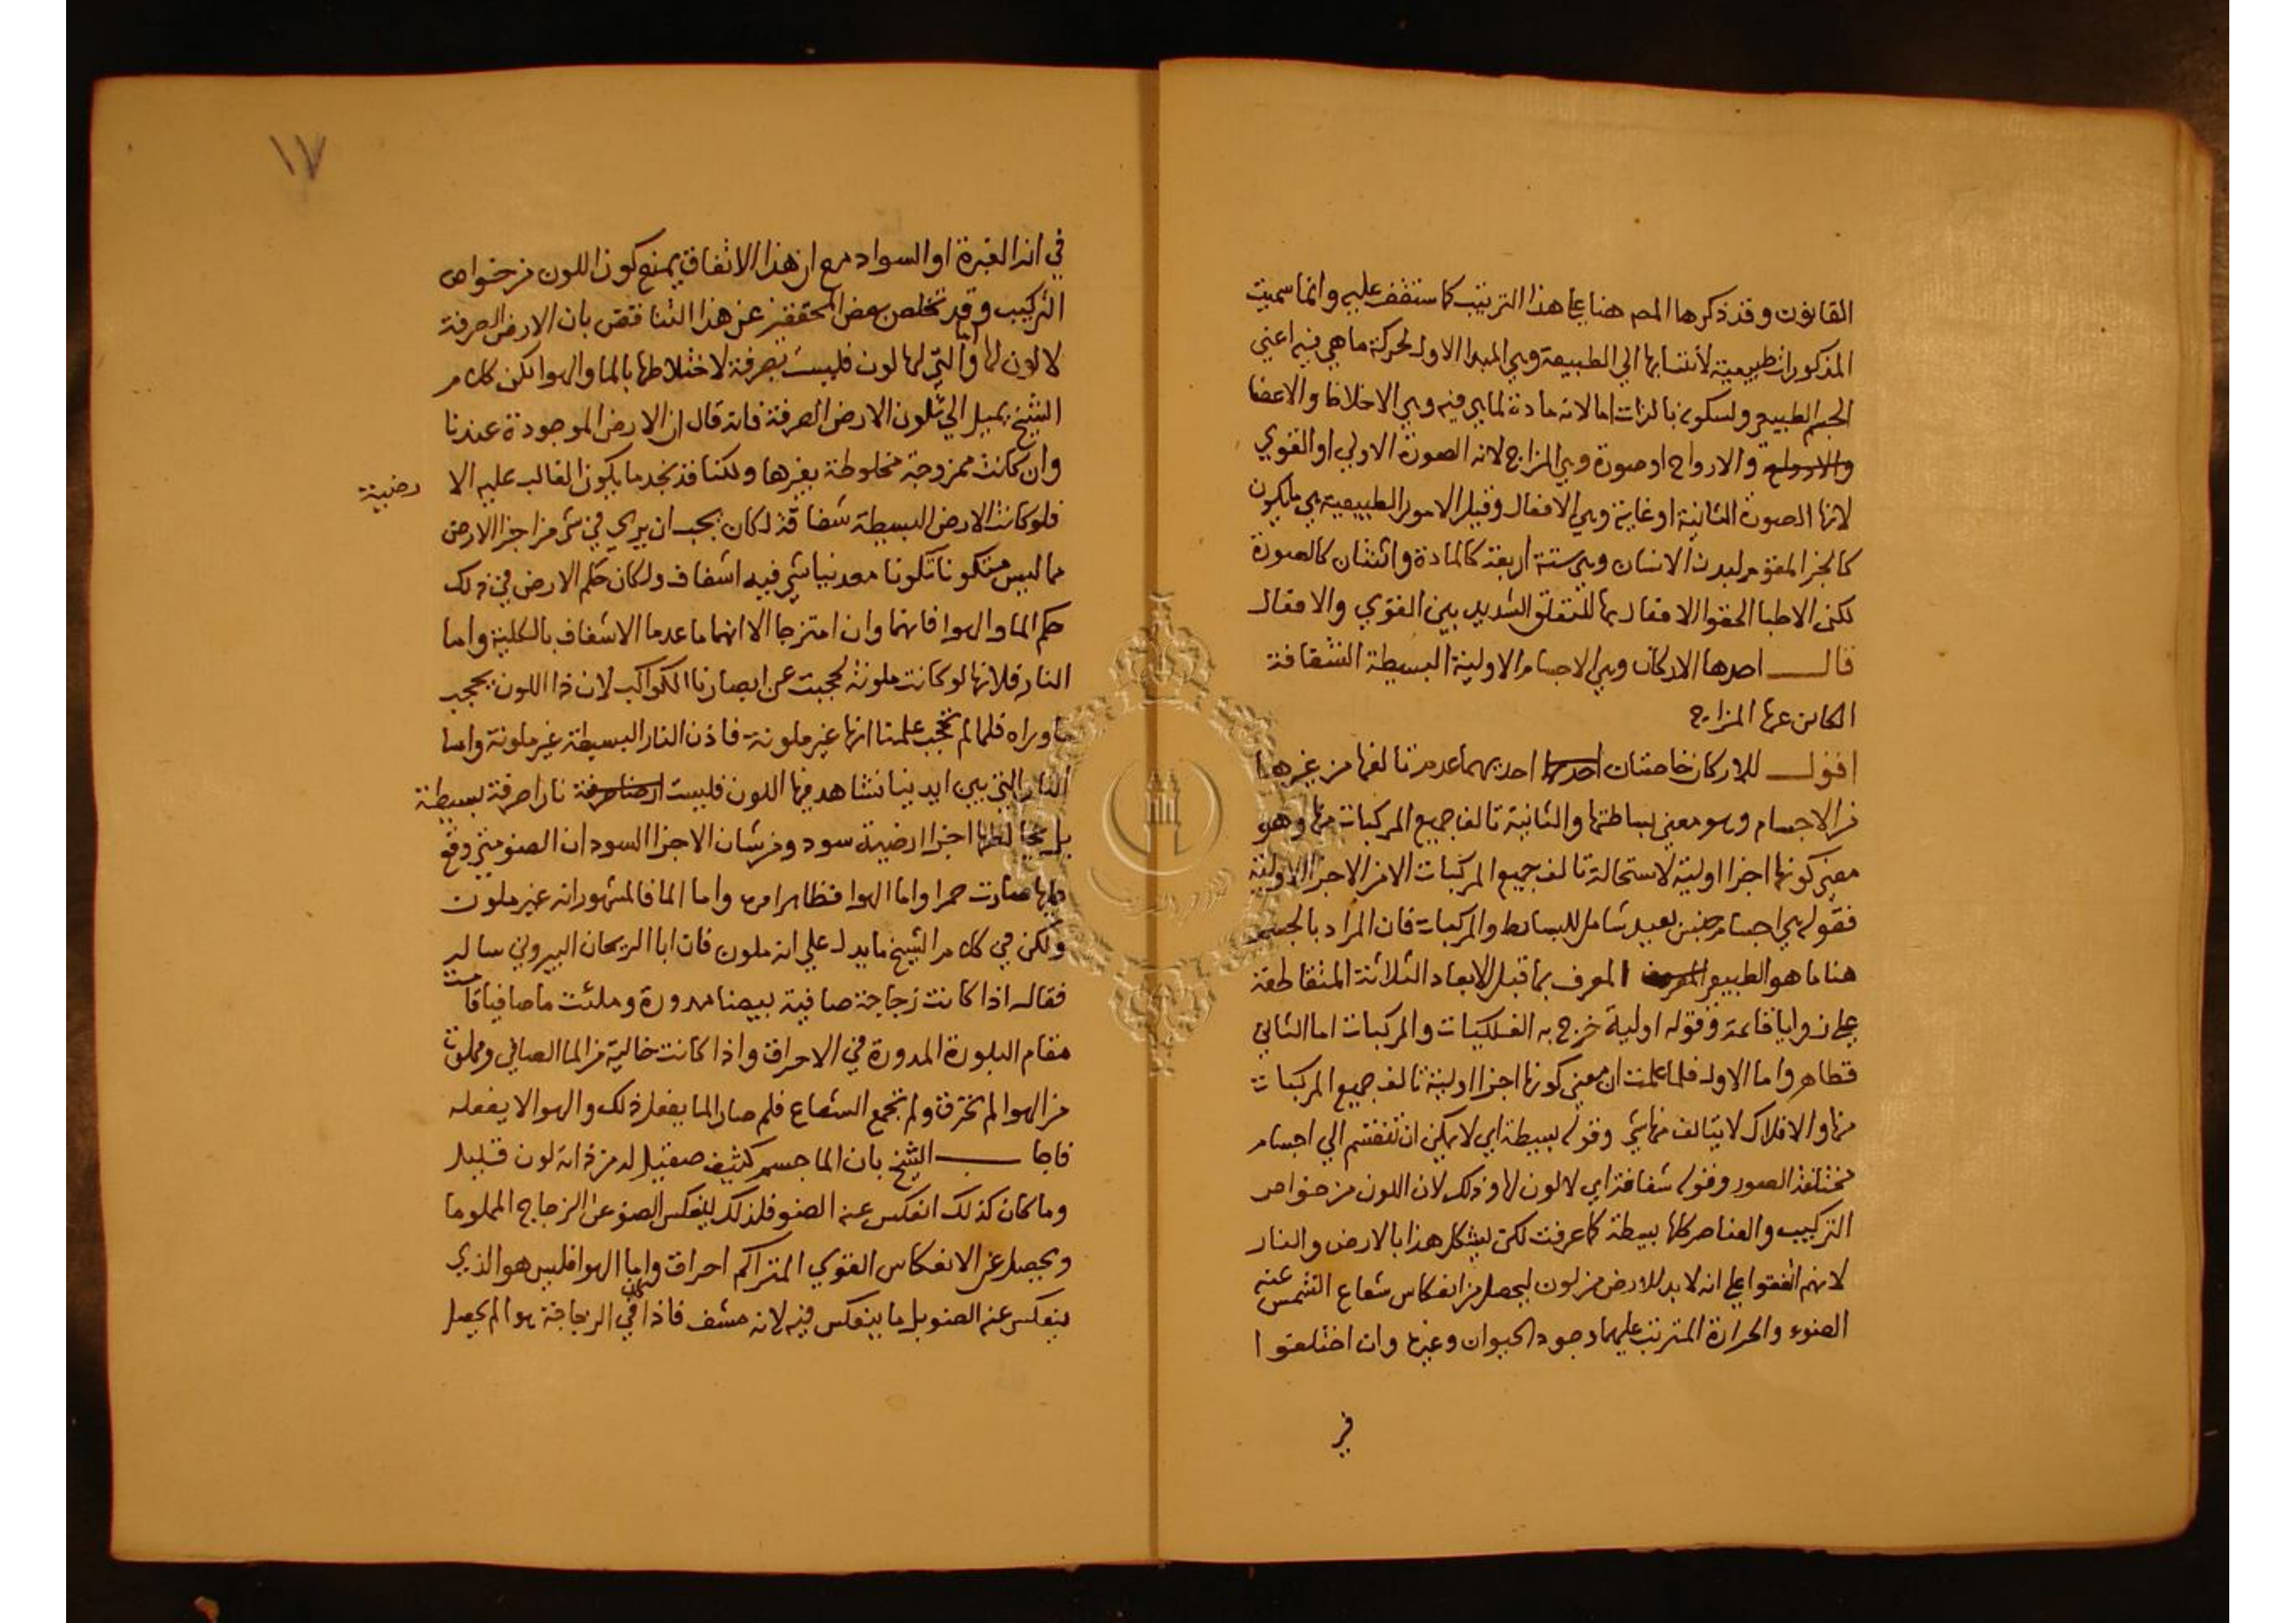 القانون وقد ذكرها المص هنا على هذا الترتيب كما ستقف عليه وانما سميت
المذكورات طبيعية لانتسابها الي الطبيعة وهي المبدا الاول لحركة ما هي فيه اعني
الجسم الطبيعي ولسكونه بالذات اما لانه مادة لما هي فيه وهي الاخلاط والاعضا
والارواح او صورة وهي المزاج لانه الصورة الاولي او القوي
لانها الصورة الثانية او غاية وهي الافعال وقيل الامور الطبيعية هي ما يكون
كالجز المقوم لبدن الانسان وهي ستة اربعة كالمادة واثنان كالصورة
لكن الاطبا الحقوا الافعال بها للتعلق الشديد بين القوي والافعال
قال احدها الاركان وهي الاجسام الاولية البسيطة الشفافة
الكاين عنها المزاج
اقول للاركان خاصتان احديهما عدم تالفها من غيرها
من الاجسام وهو معني بساطتها والثانية تالف جميع المركبات منها وهو
معني كونها اجزا اولية لاستحالة تالف جميع المركبات الا من الاجزا الاولية
فقوله هي اجسام جنس بعيد شامل للبسائط والمركبات فان المراد بالجسم
هنا ما هو الطبيعي المعرف بما قبل الابعاد الثلاثة المتقاطعة
علي زوايا قائمة وقوله اولية خرج به الفلكيات والمركبات اما الثاني
فظاهر واما الاول فلما علمت ان معني كونها اجزا اولية تالف جميع المركبات
منها والافلاك لا يتالف منها شي وقوله بسيطة اي لا يمكن ان تنقسم الي اجسام
مختلفة الصور وقوله شفافة اي لا لون لها وذلك لان اللون من خواص
التركيب والعناصر كلها بسيطة كما عرفت لكن يشكل هذا بالارض والنار
لانهم اتفقوا علي انه لا بد للارض من لون ليحصل من انعكاس شعاع الشمس عنه
الضوء والحرارة المترتب عليهما وجود الحيوان وغيره وان اختلفوا
في
١٧
في انه الغبرة او السواد مع ان هذا الاتفاق يمنع كون اللون من خواص
التركيب وقد تخلص بعض المحققين عن هذا التناقض بان الارض الصرفة
لا لون لها واما التي لها لون فليست بصرفة لاختلاطها بالما والهوا لكن كلام
الشيخ يميل الي تلون الارض الصرفة فانه قال ان الارض الموجودة عندنا
وان كانت ممزوجة مخلوطة بغيرها ولكنا قد نجد ما يكون الغالب عليه الا
رضية
فلو كانت الارض البسيطة شفافة لكان يجب ان يري في شي من اجزا الارض
مما ليس متكونا تكونا معدنيا شي فيه اشفاف ولكان حكم الارض في ذلك
حكم الما والهوا فانهما وان امتزجا الا انهما ما عدما الاشفاف بالكلية واما
النار فلانها لو كانت ملونة لحجبت عن ابصارنا الكواكب لان ذا اللون يحجب
ما وراه فلما لم تحجب علمنا انها غير ملونة فاذن النار البسيطة غير ملونة واما
النار التي بين ايدينا نشاهد فيها اللون فليست نارا صرفة بسيطة
بل يخالطها اجزا ارضية سود ومن شان الاجزا السود ان الضو متي وقع
عليها صارت حمرا واما الهوا فظاهر امره واما الما فالمشهور انه غير ملون
ولكن في كلام الشيخ ما يدل علي انه ملون فان ابا الريحان البيروني ساله
فقال اذا كانت زجاجة صافية بيضا مدورة وملئت ما صافيا قامت
مقام البلورة المدورة في الاحراق واذا كانت خالية من الما الصافي ومملوة
من الهوا لم تحرق ولم تجمع الشعاع فلم صار الما يفعل ذلك والهوا لا يفعله
فاجاب الشيخ بان الما جسم كثيف صقيل له من ذاته لون قليل
وما كان كذلك انعكس عنه الضو فلذلك ينعكس الضو عن الزجاج المملو ما
ويحصل عن الانعكاس القوي المتراكم احراق واما الهوا فليس هو الذي
ينعكس عنه الضو بل ما ينعكس فيه لانه مشف فاذا كان في الزجاجة هوا لم يحصل